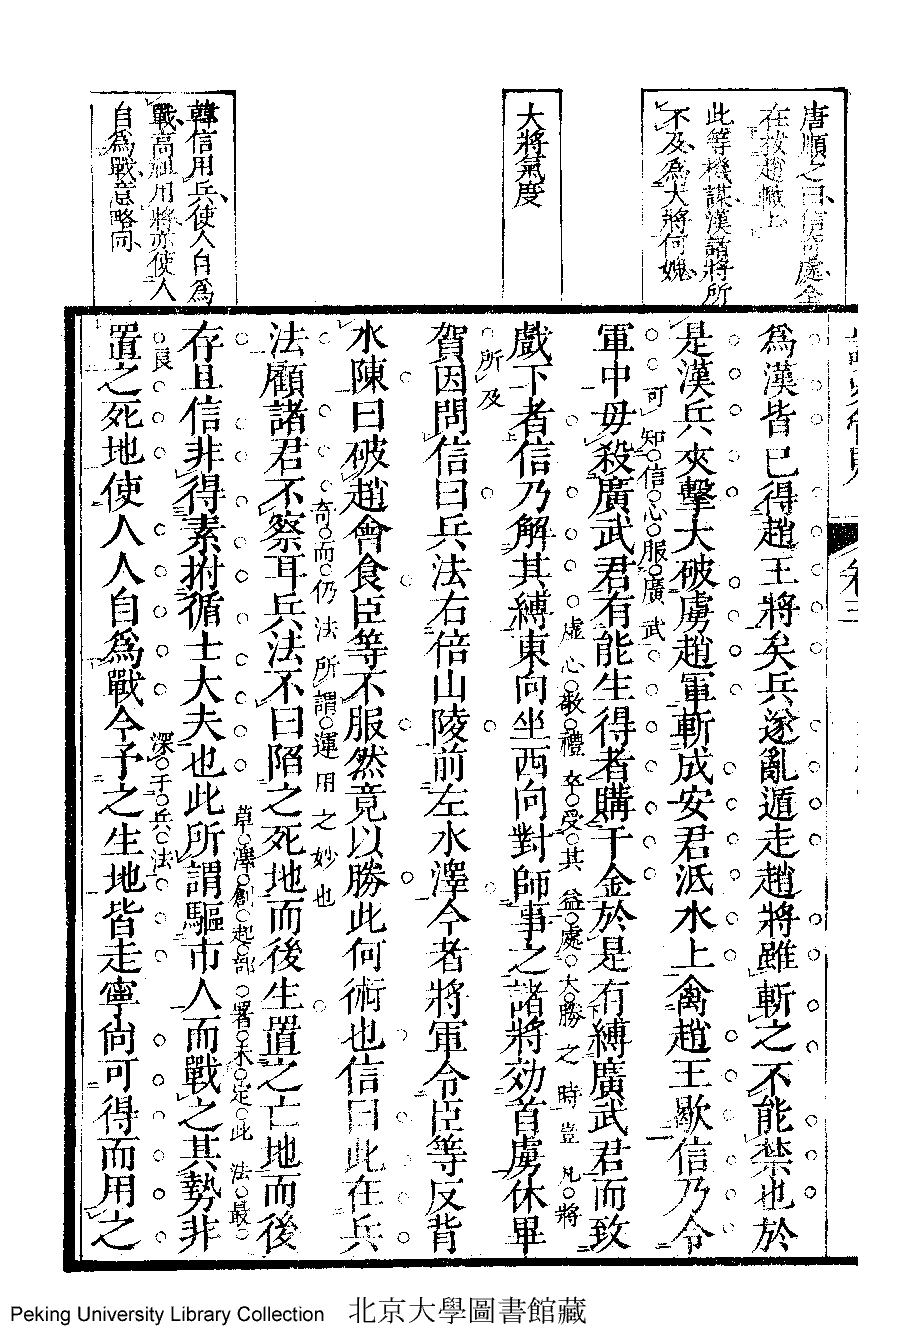 唐順之曰信奇處全
在拔趙幟上
此等機謀漢諸將所
不及為大將何媿
大將氣度
韓信用兵使人自為
戰高祖用將亦使人
自為戰意略同
卷三
為漢皆已得趙王將矣兵遂亂遁走趙將雖斬之不能禁也於
是漢兵夾擊大破虜趙軍斬成安君泜水上禽趙王歇信乃令
軍中毋殺廣武君有能生得者購千金於是有縛廣武君而致
可知信心服廣武
戲下者信乃解其縛東向坐西向對師事之諸將効首虜休畢
虛心敬禮卒受其益處大勝之時豈凡將
所及
賀因問信曰兵法右倍山陵前左水澤今者將軍令臣等反背
水陳曰破趙會食臣等不服然竟以勝此何術也信曰此在兵
法顧諸君不察耳兵法不曰陷之死地而後生置之亡地而後
奇而仍法所謂運用之妙也
存且信非得素拊循士大夫也此所謂驅市人而戰之其勢非
草澤創起部署未定此法最
良
置之死地使人人自為戰今予之生地皆走寧尚可得而用之
深于兵法
北京大學圖書館藏
Peking University Library Collection